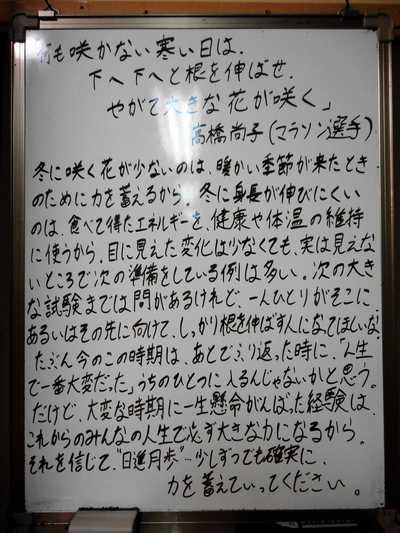 何も咲かない寒い日は、
下へ下へと根を伸ばせ、
やがて大きな花が咲く」
高橋尚子(マラソン選手)
冬に咲く花が少ないのは、暖かい季節が来たとき
のために力を蓄えるから。冬に身長が伸びにくい
のは、食べて得たエネルギーを、健康や体温の維持
に使うから。目に見えた変化は少なくても、実は見えな
いところで次の準備をしている例は多い。次の大き
な試験までは間があるけれど、一人ひとりがそこに、
あるいはその先に向けて、しっかり根を伸ばす人になってほしいな。
たぶん今のこの時期は、あとでふり返った時に、「人生
で一番大変だった」うちのひとつに入るんじゃないかと思う。
だけど、大変な時期に一生懸命がんばった経験は、
これからのみんなの人生で必ず大きな力になるから。
それを信じて、"日進月歩"…少しずつでも確実に、
力を蓄えていってください。